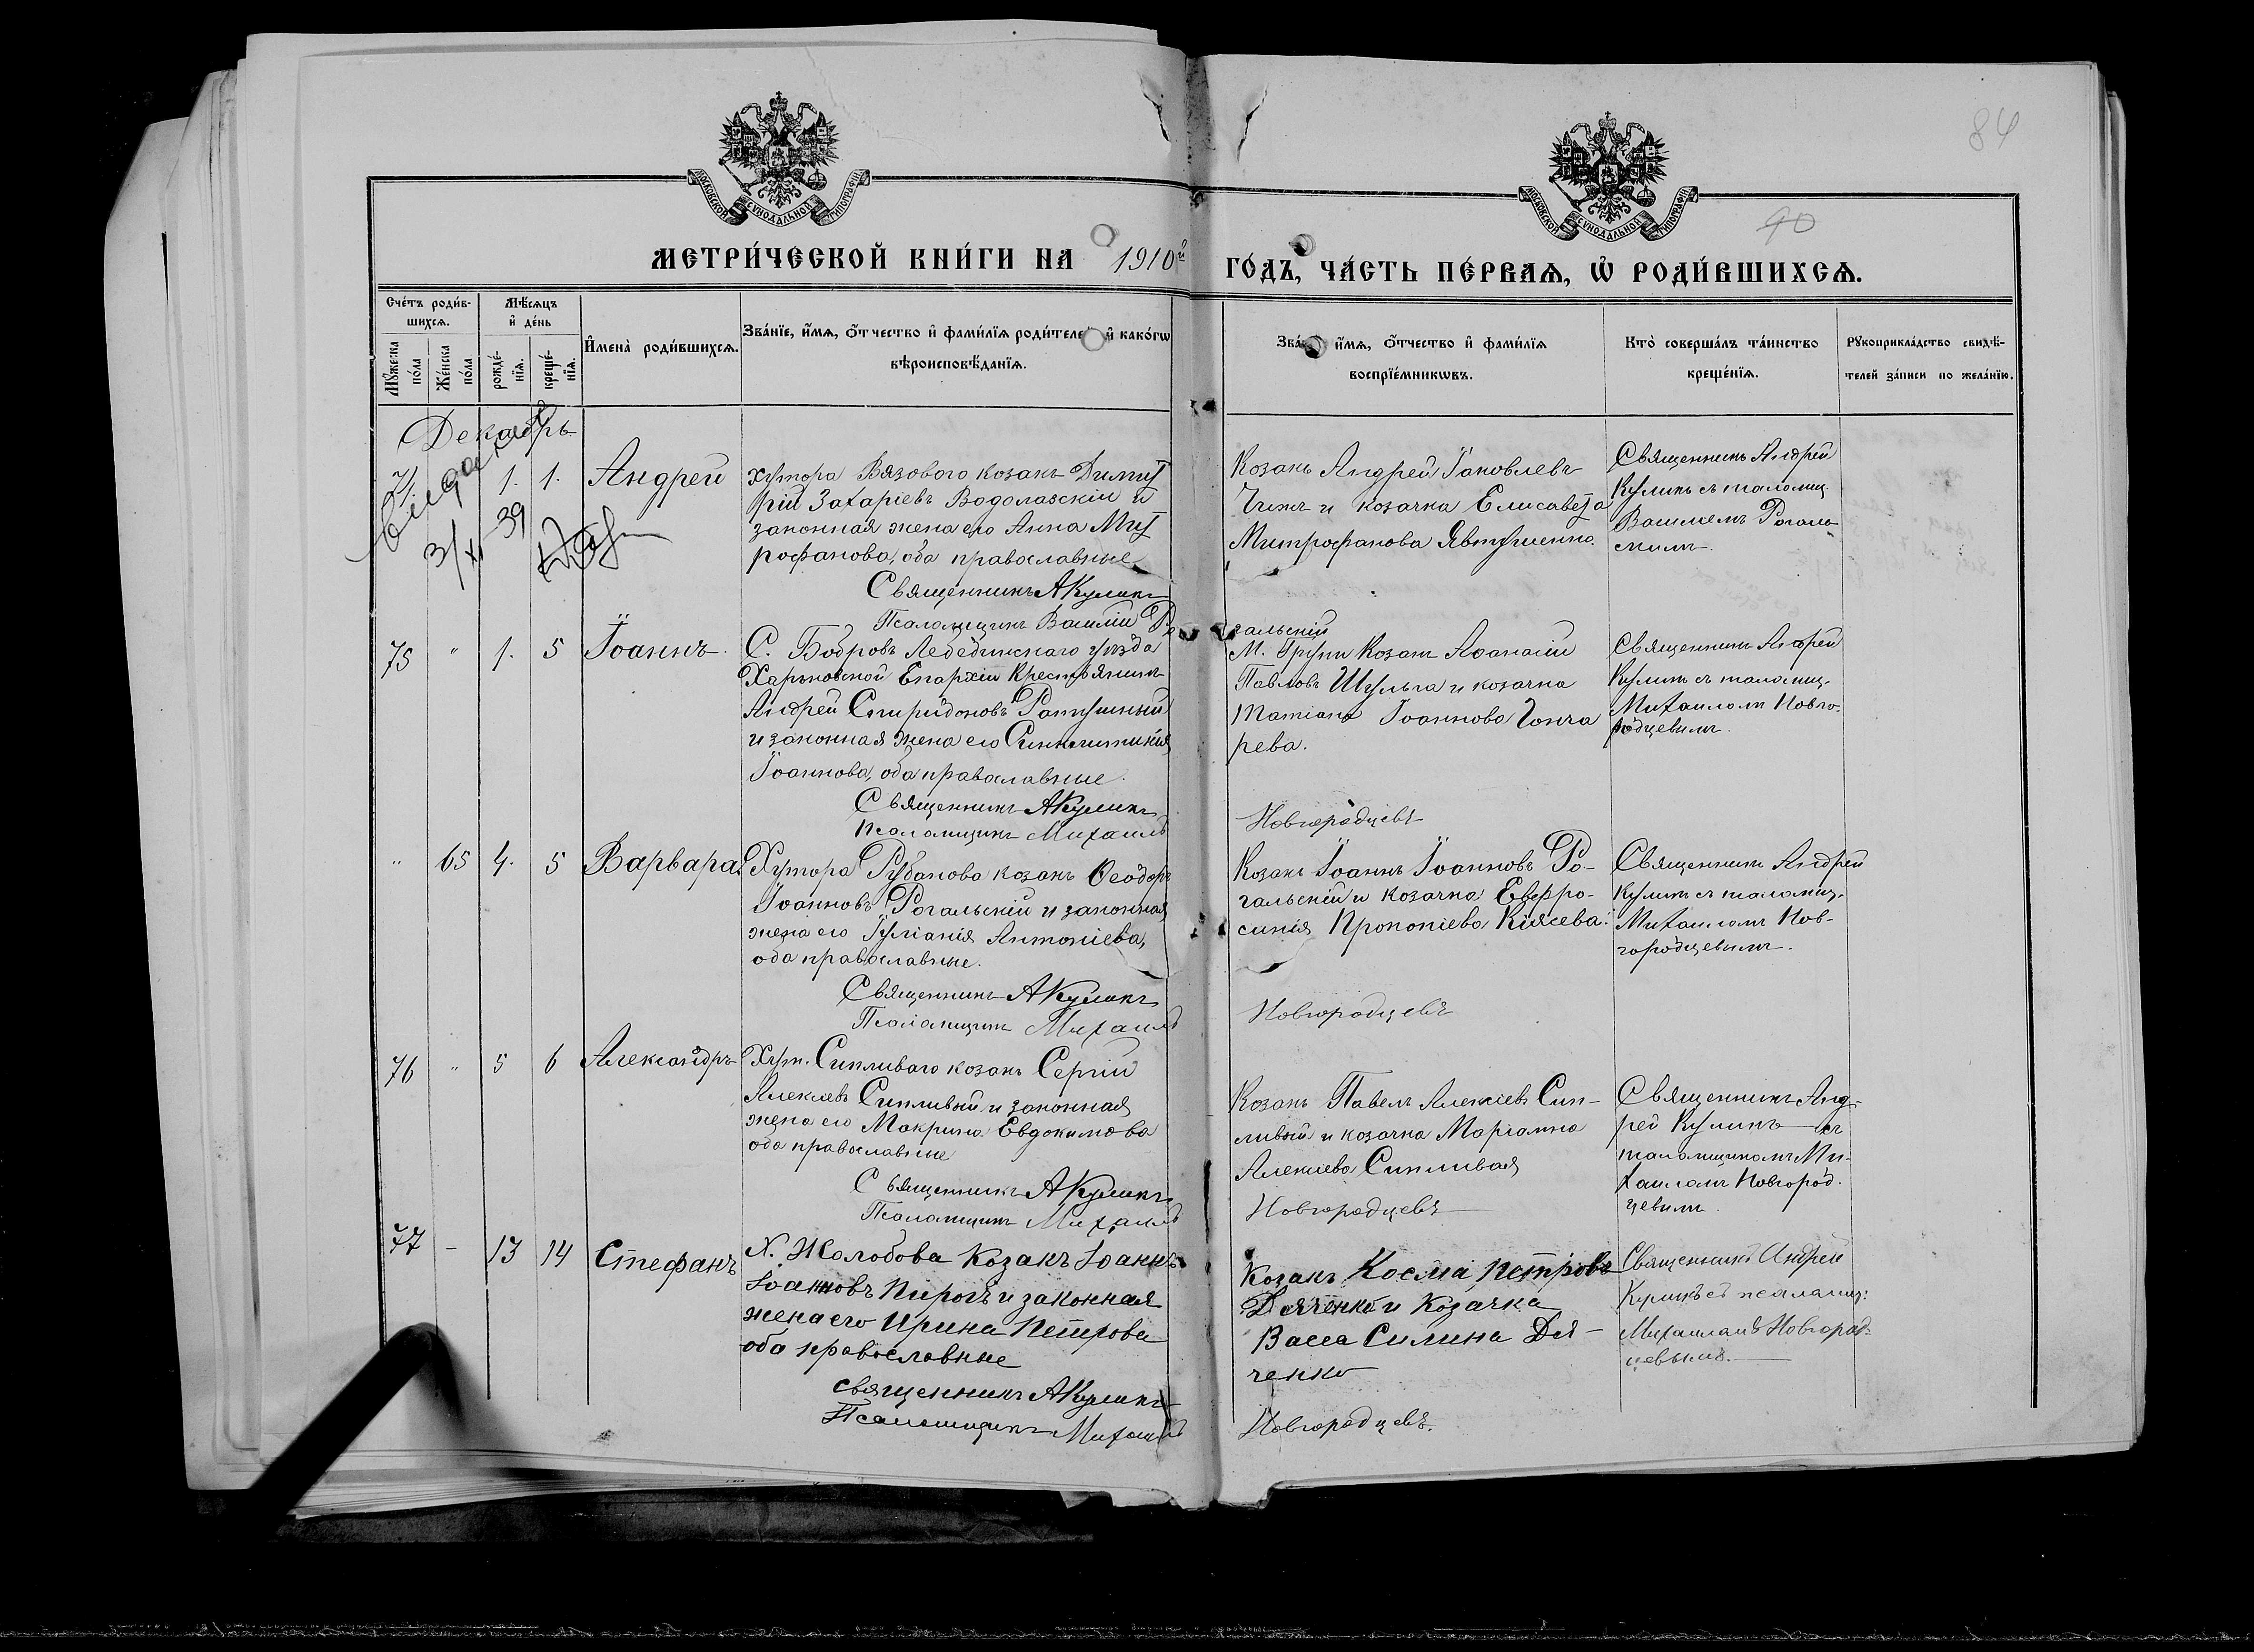 84
90
МОСКОВСКОЙ СѴНОДАЛЬНОЙ ТИПОГРАФІИ
МОСКОВСКОЙ СѴНОДАЛЬНОЙ ТИПОГРАФІИ
МЕТРИ́ЧЕСКОЙ КНИ́ГИ НА 1910й ГО́ДЪ, ЧА́СТЬ ПЕ́РВАѦ, Ѡ҆ РОДИ́ВШИХСѦ.
Сче́тъ роди́в-
шихсѧ.
Мѣ́сѧцъ
и҆ де́нь
Мꙋ́жеска
по́ла
Же́нска
по́ла
рожде́-
нїѧ.
креще́-
нїѧ.
И҆мена̀ роди́вшихсѧ.
Зва́нїе, и҆́мѧ, ѻ҆́тчество и҆ фами́лїѧ роди́телей и҆ како́гѡ
вѣроисповѣ́данїѧ.
Зва́ и҆́мѧ, ѻ҆́тчество и҆ фами́лїѧ
воспрїе́мникѡвъ.
Кто̀ соверша́лъ та́инство
креще́нїѧ.
Рꙋкоприкла́дство свидѣ́-
телей за́писи по жела́нїю.
Декабрь
1. 1. Андрей
3/XI-39
хутора Вязового козакъ Димит
рій Захаріевъ Водолазскій и
законная жена его Анна Мит
рофанова, оба православные
Священникъ АКуликъ
Псаломщикъ Василій Ро
гальскій
Козакъ Андрей Іаковлевъ
Чижъ и козачка Елисавета
Митрофанова Явтушенко.
Священникъ Андрей
Куликъ съ псаломщ.
Василіемъ Рогаль
скимъ.
75 " 1. 5 Іоаннъ.
С. Бобровъ Лебединскаго уѣзда
Харьковской Епархіи Крестьянинъ
Андрей Спиридоновъ Ратушный
и законная жена его Синклитикія
Іоаннова, оба православные.
Священникъ АКуликъ
Псаломщикъ Михаилъ
Новгородцевъ
М. Груни Козакъ Афанасій
Павловъ Шульга и козачка
Татіана Іоаннова Гонча
рева.
Священникъ Андрей
Куликъ съ псаломщ.
Михаиломъ Новго-
родцевымъ.
" 65 4. 5 Варвара.
Хутора Рубанова козакъ Ѳеодоръ
Іоанновъ Рогальскій и законная
жена его Іуліанія Антоніева,
оба православные.
Священникъ АКуликъ
Псаломщикъ Михаилъ
Новгородцевъ
Козакъ Іоаннъ Іоанновъ Ро-
гальскій и козачка Евфро-
синія Прокопіева Кіяева.
Священникъ Андрей
Куликъ съ псаломщ.
Михаиломъ Нов-
городцевымъ.
76 " 5 6 Александръ
Хут. Сипливаго козакъ Сергій
Алексіевъ Сипливый и законная
жена его Макрина Евдокимова
оба православные
Священникъ АКуликъ
Псаломщикъ Михаилъ
Новгородцевъ
Козакъ Павелъ Алексіевъ Сип-
ливый и козачка Маріамна
Алексіева Сипливая
Священникъ Анд-
рей Куликъ съ
псаломщикомъ Ми-
хаиломъ Новгород-
цевымъ.
77 - 13 14 Стефанъ
Х. Жолобова Козакъ Іоаннъ
Іоанновъ Пирогъ и законная
жена его Ирина Петрова
оба православные
Священникъ АКуликъ
Псаломщикъ Михаилъ
Новгородцевъ.
Козакъ Косма Петровъ
Дяченко и Козачка
Васса Силина Дя-
ченко
Священникъ Андрей
Куликъ съ псаломщ:
Михаиломъ Новгород-
цевымъ.